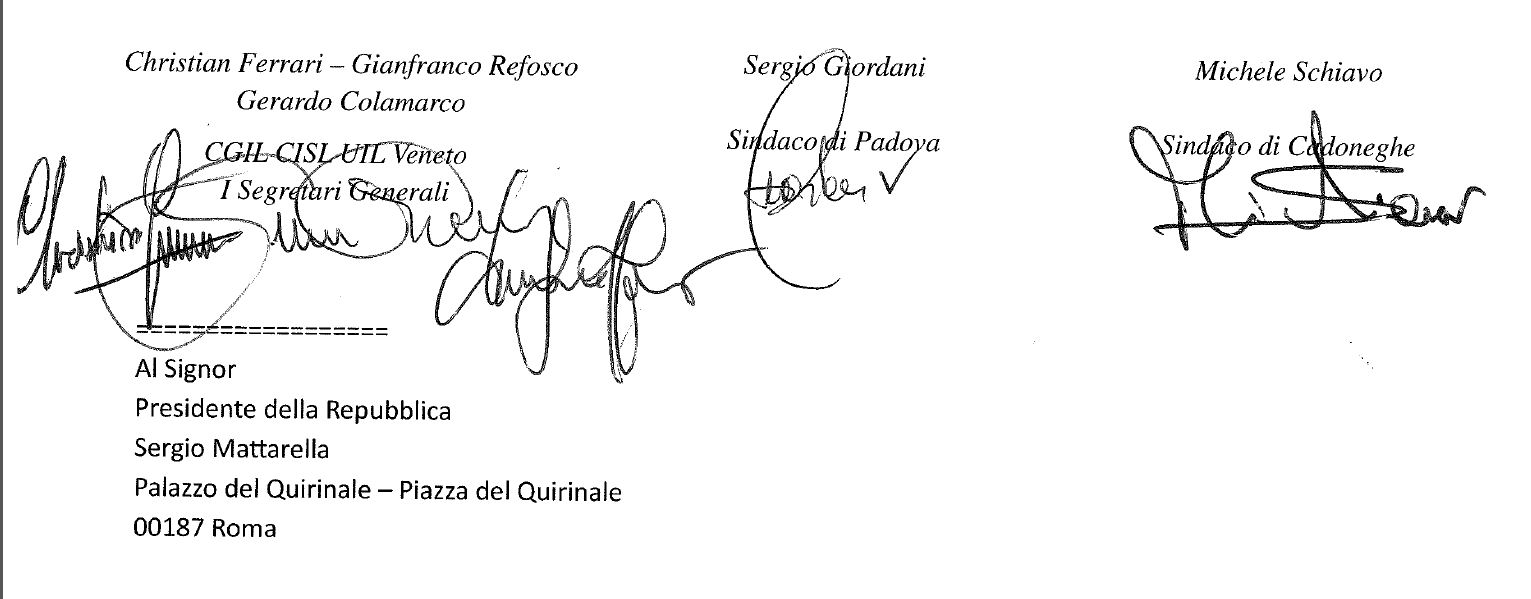 Christian Ferrari – Gianfranco Refosco
Gerardo Colamarco
CGIL CISL UIL Veneto
I Segretari Generali
Sergio Giordani
Sindaco di Padova
Michele Schiavo
Sindaco di Cadoneghe
==================
Al Signor
Presidente della Repubblica
Sergio Mattarella
Palazzo del Quirinale – Piazza del Quirinale
00187 Roma